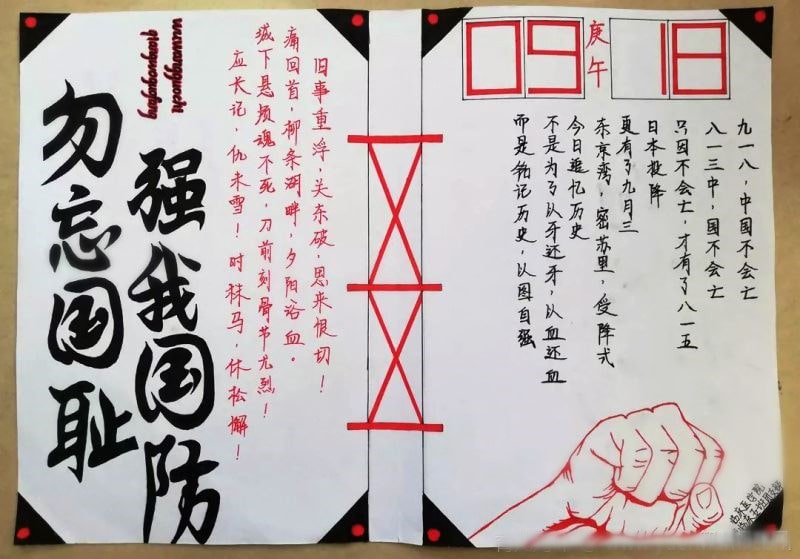 wuwangguochi
qiangwoguofang
勿忘国耻
强我国防
旧事重浮，关东破，思来恨切！
痛回首，柳条湖畔，夕阳浴血。
城下悬颅魂不死，刀前刻骨节尤烈！
应长记，仇未雪！时秣马，休松懈！
09 庚午 18
九一八，中国不会亡
八一三中，国不会亡
只因不会亡，才有了八一五
日本投降
更有了九月三
东京湾，密苏里，受降式
今日追忆历史
不是为了以牙还牙，以血还血
而是铭记历史，以图自强